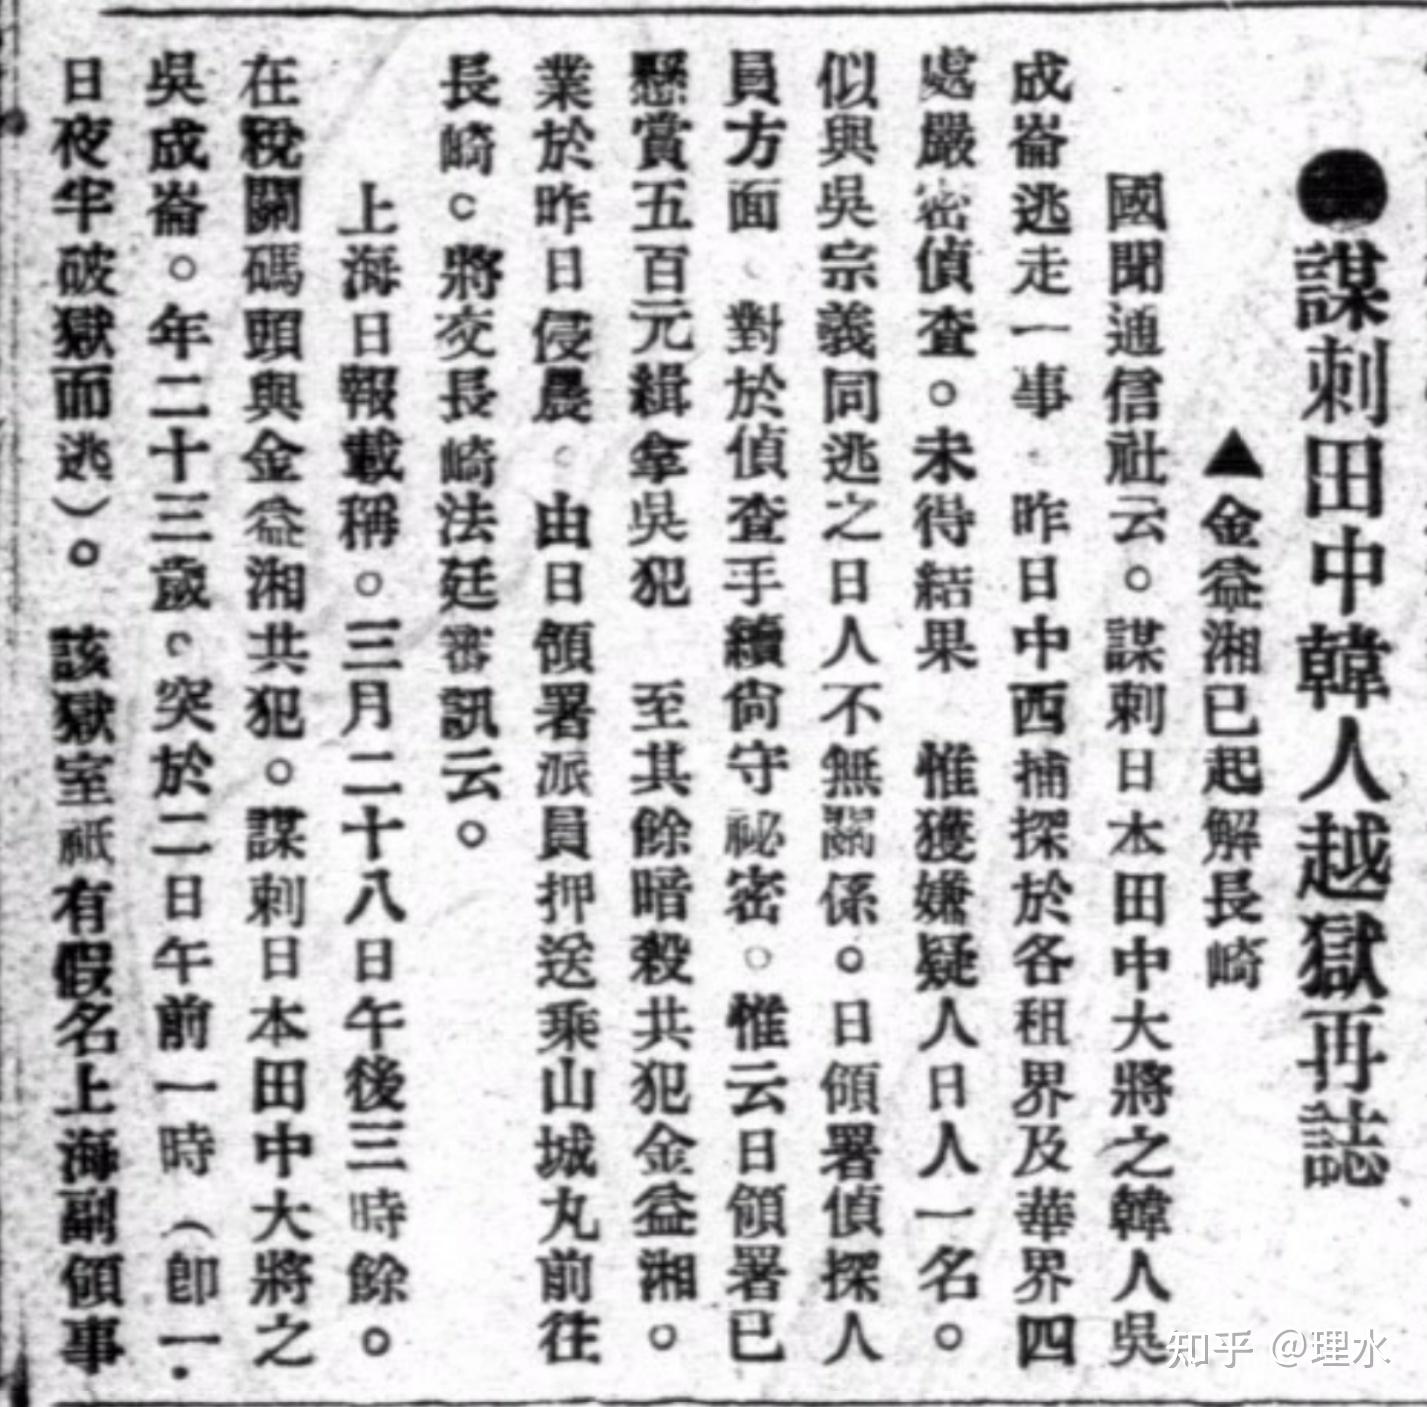 ●謀刺田中韓人越獄再誌
▲金益湘已起解長崎
國聞通信社云。謀刺日本田中大將之韓人吳
成崙逃走一事.昨日中西捕探於各租界及華界四
處嚴密偵查。未得結果 惟獲嫌疑人日人一名。
似與吳宗義同逃之日人不無關係。日領署偵探人
員方面、對於偵查手續尙守祕密。惟云日領署已
懸賞五百元緝拿吳犯 至其餘暗殺共犯金益湘。
業於昨日侵晨。由日領署派員押送乘山城丸前往
長崎。將交長崎法廷審訊云。
上海日報載稱。三月二十八日午後三時餘。
在稅關碼頭與金益湘共犯。謀刺日本田中大將之
吳成崙。年二十三歲。突於二日午前一時(卽一.
日夜牢破獄而逃)。 該獄室祇有假名上海副領事
知乎 @理水